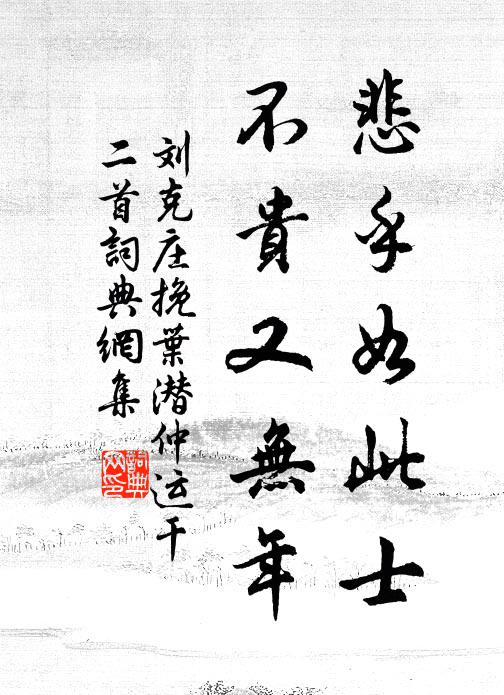 悲乎如此士
不貴又無年
刘克庄挽葉潜仲运干
二首詞典網集
詞典網印